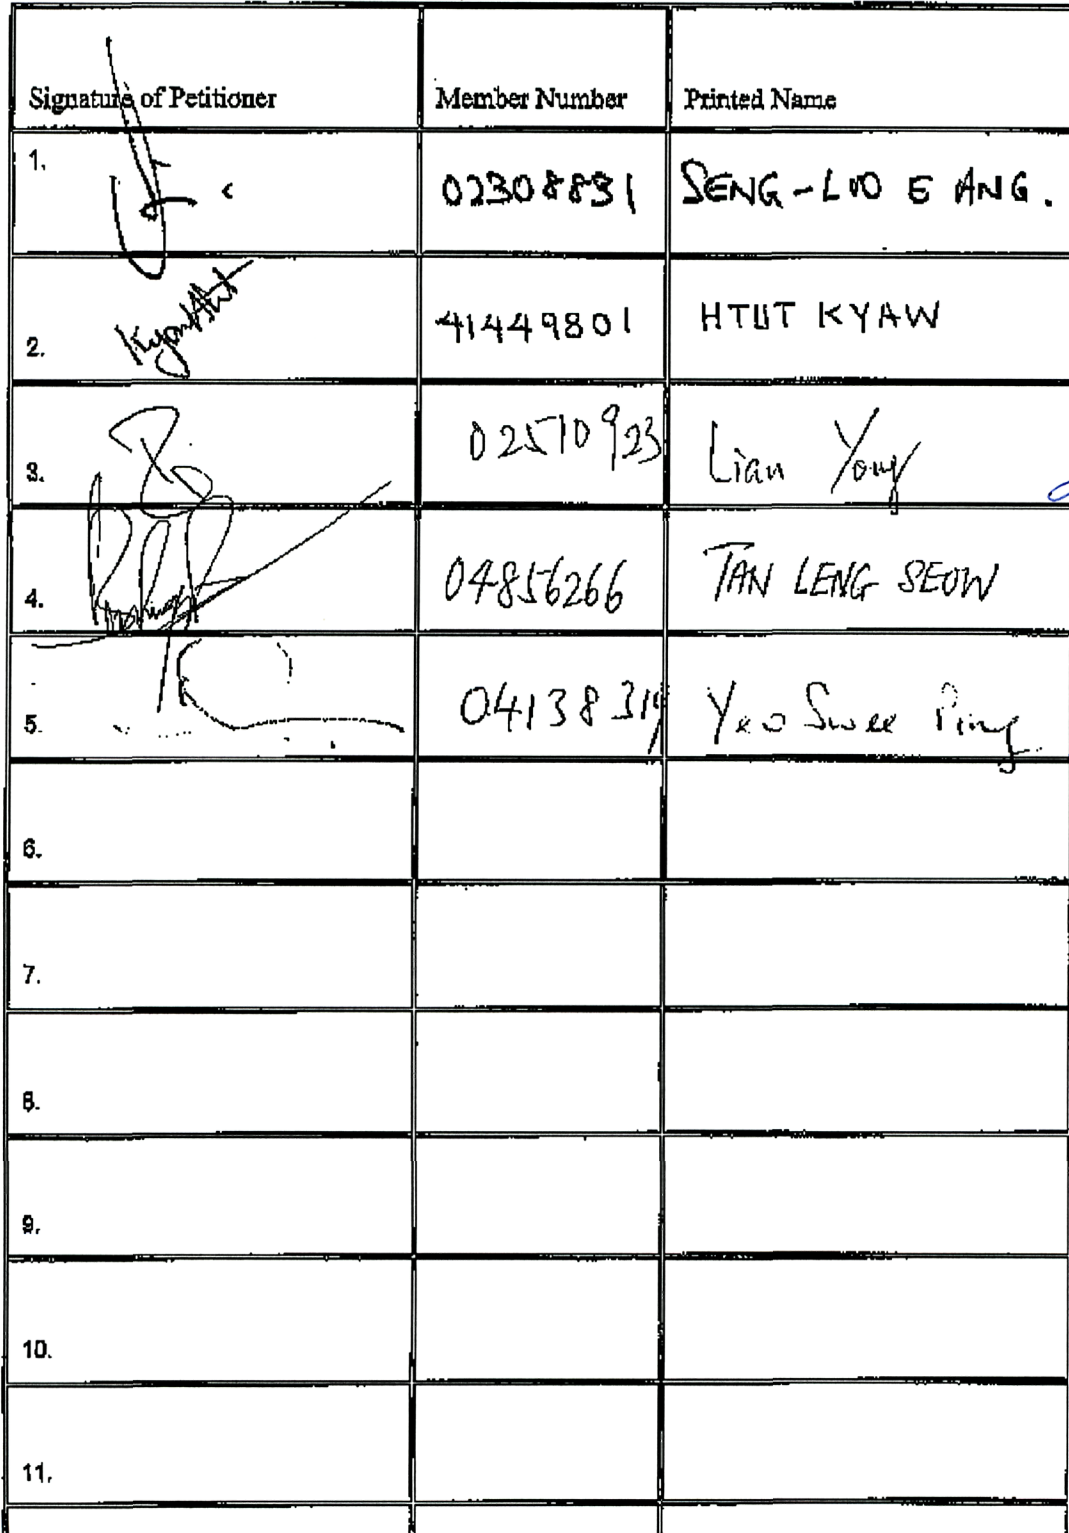 Signature of Petitioner Member Number Printed Name
1. 02308831 SENG-LOO E ANG.
2. KyawHtut 41449801 HTUT KYAW
3. 02510923 Lian Yong
4. 04856266 TAN LENG SEOW
5. 04138319 Yeo Swee Ping
6.
7.
8.
9.
10.
11.